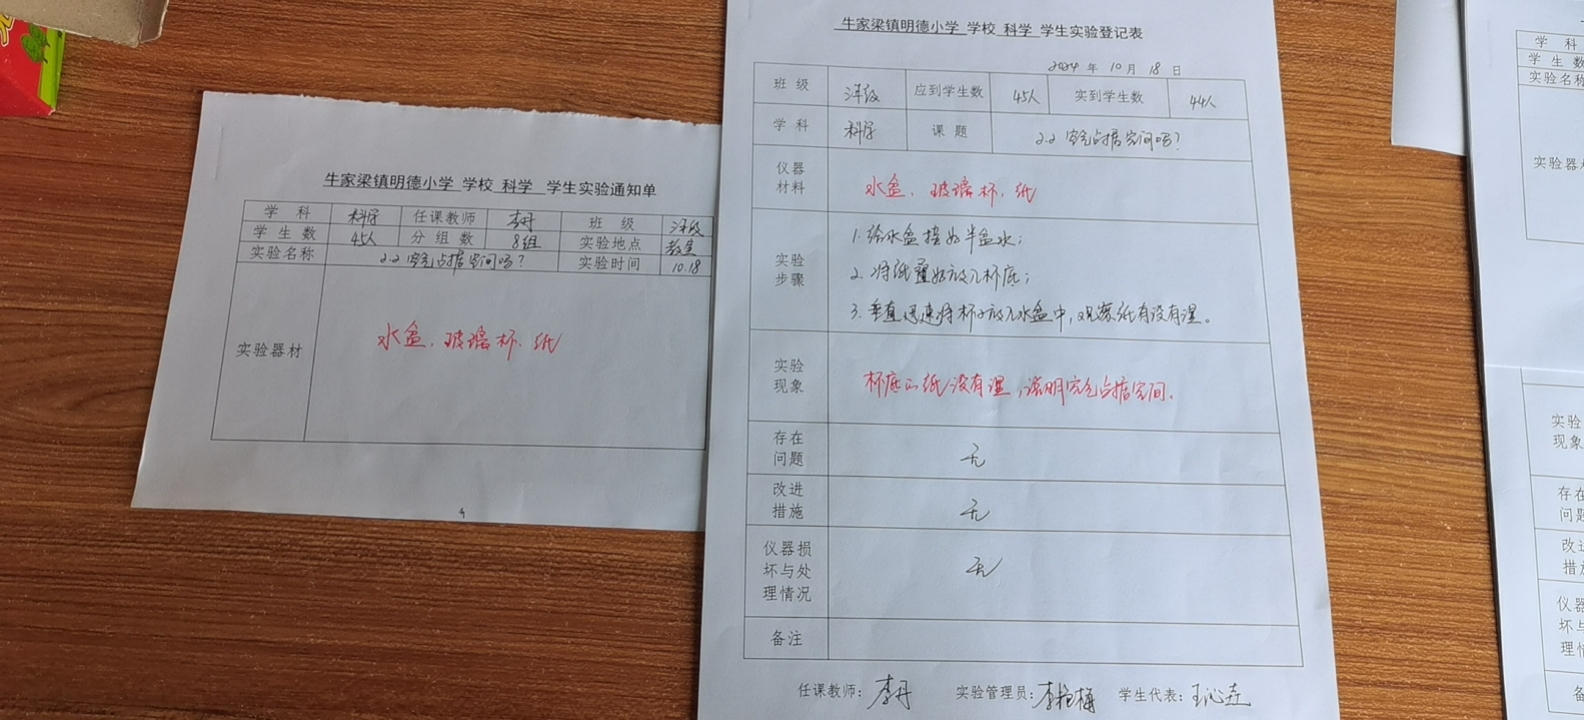 牛家梁镇明德小学 学校 科学 学生实验通知单
学科 科学 任课教师 李丹 班级 三年级
学生数 45人 分组数 8组 实验地点 教室
实验名称 2.2 空气占据空间吗? 实验时间 10.18
实验器材 水盆、玻璃杯、纸
牛家梁镇明德小学 学校 科学 学生实验登记表
2024 年 10 月 18 日
班级 三年级 应到学生数 45人 实到学生数 44人
学科 科学 课题 2.2 空气占据空间吗?
仪器材料 水盆、玻璃杯、纸
实验步骤
1. 给水盆接好半盆水;
2. 将纸叠好放入杯底;
3. 垂直迅速将杯子放入水盆中,观察纸有没有湿。
实验现象 杯底的纸没有湿,说明空气占据空间。
存在问题 无
改进措施 无
仪器损坏与处理情况 无
备注
任课教师: 李丹 实验管理员: 学生代表:
学科
学生数
实验名称
实验器
实验
现象
存在
问题
改进
措施
仪器
坏与
理情
备